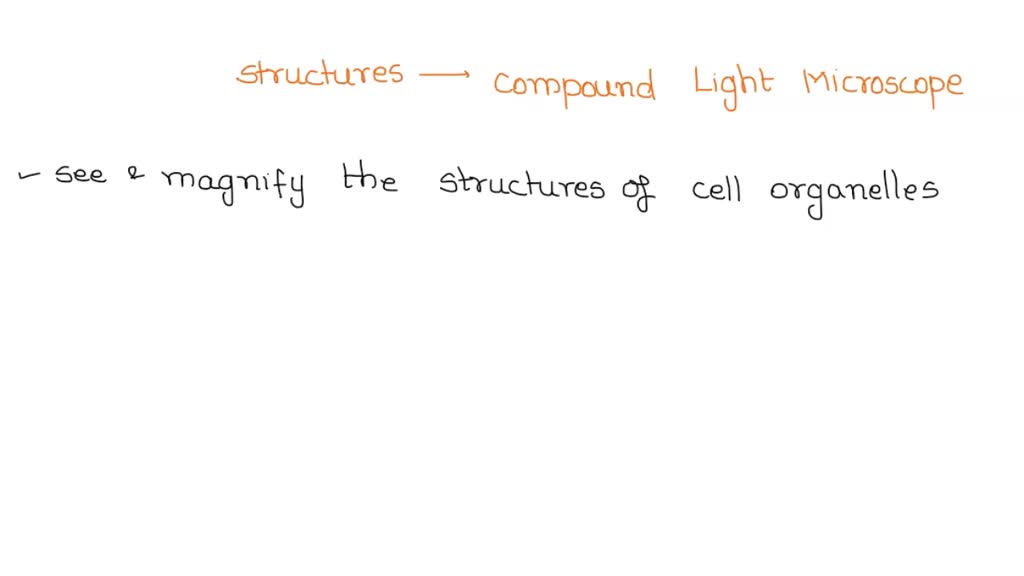 structures → Compound Light Microscope
✓ see & magnify the structures of cell organelles